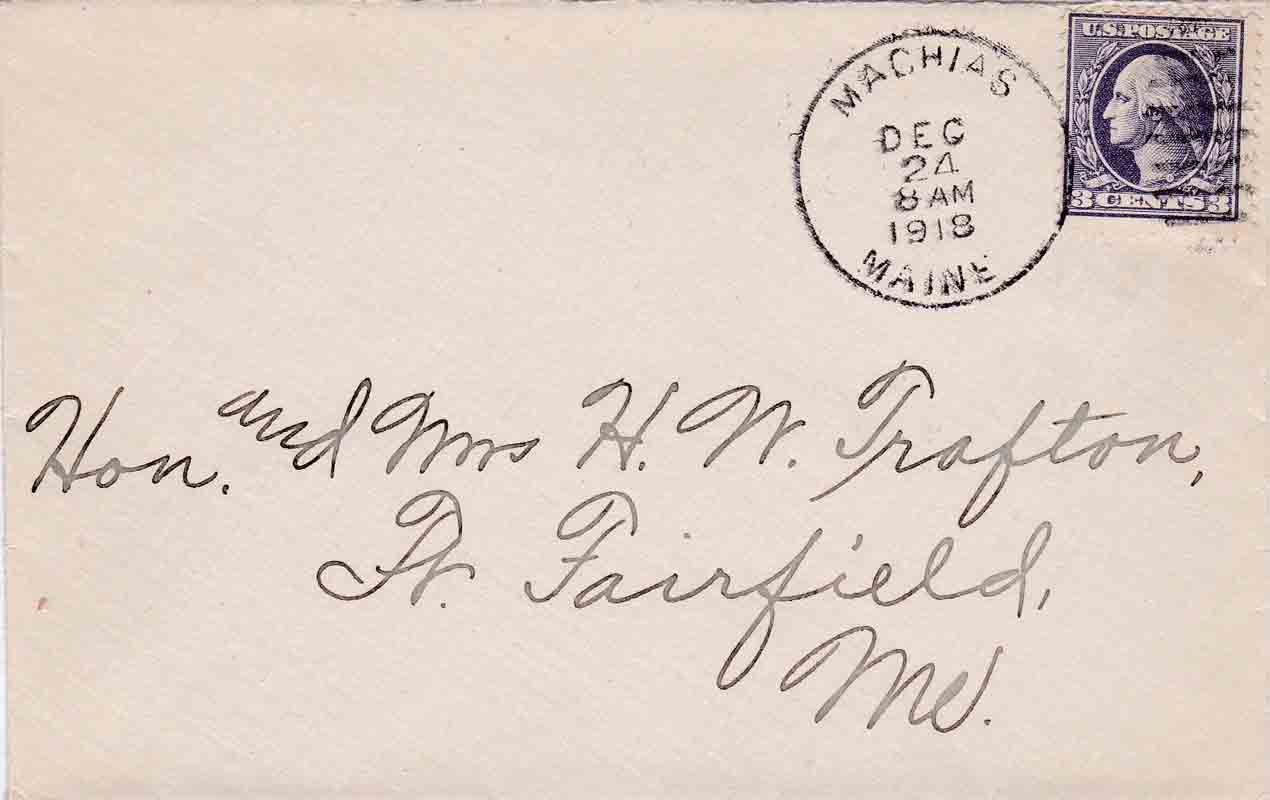 MACHIAS
DEC
24
8 AM
1918
MAINE
U.S. POSTAGE
3 CENTS 3
Hon. and Mrs H. W. Trafton,
Ft. Fairfield,
Me.